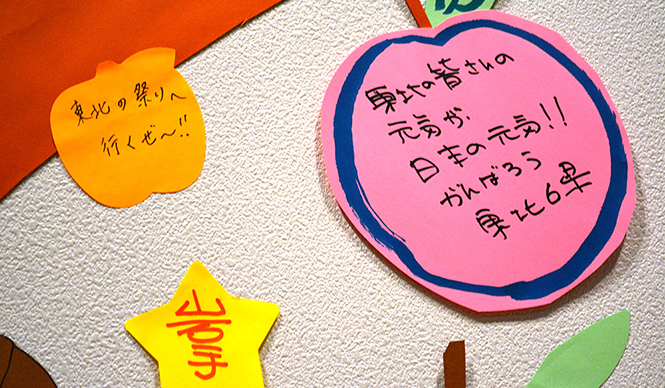 東北の祭りへ
行くぜ〜!!
東北の皆さんの
元気が
日本の元気!!
がんばろう
東北6県
岩手